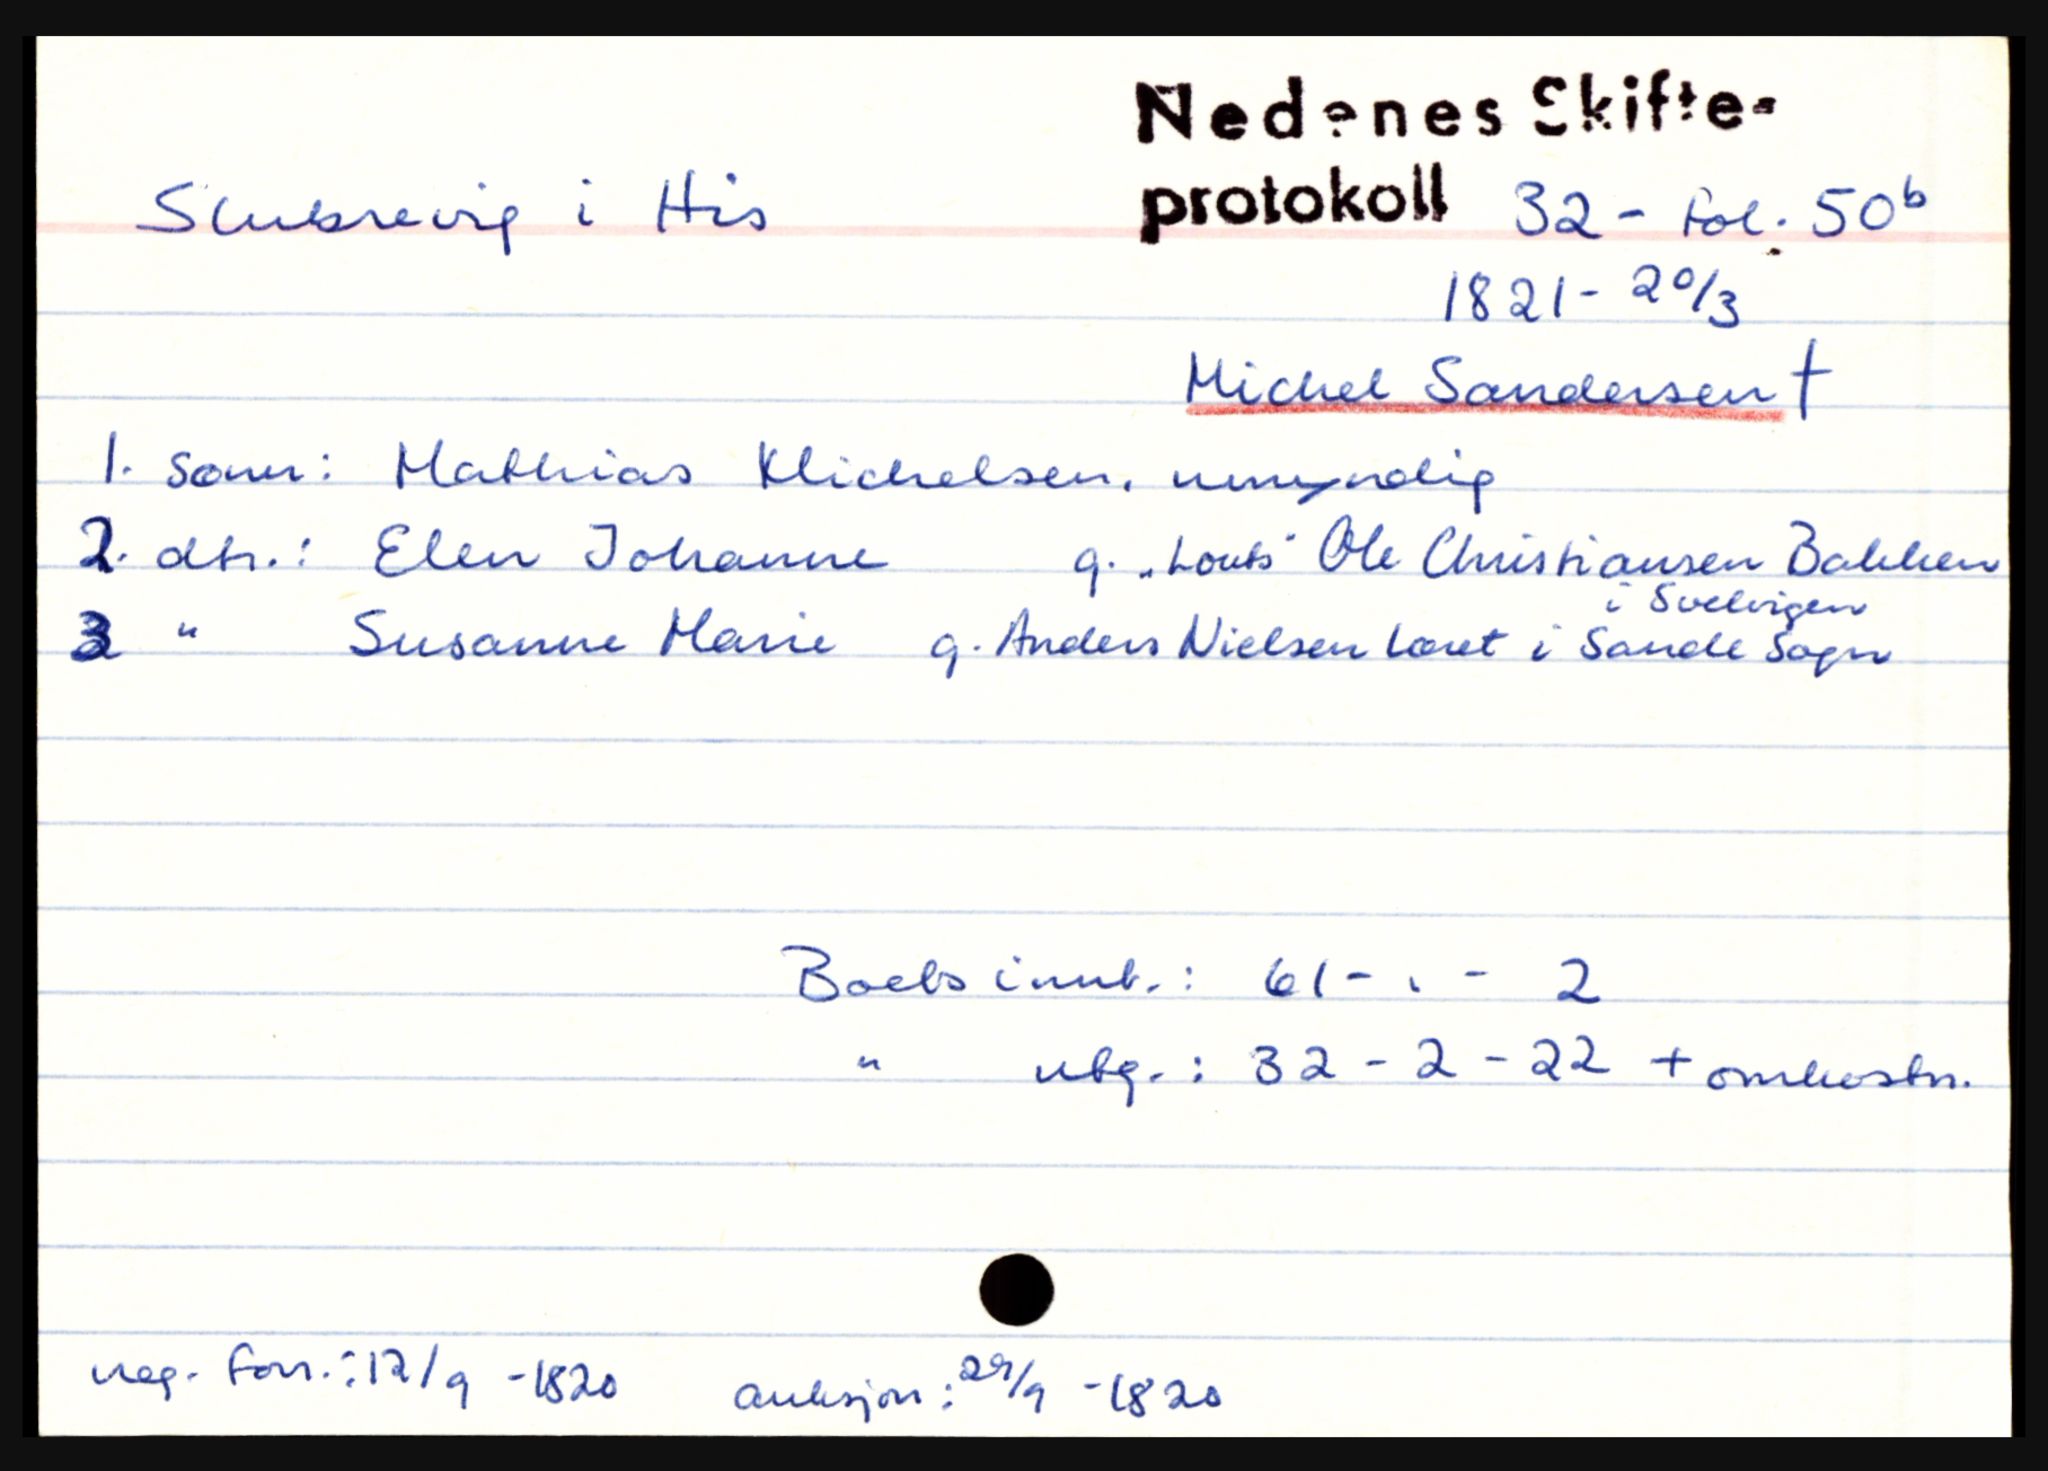 Nedenes Skifte-
Slubrevig i His protokoll 32 - fol. 50b
1821 - 20/3
Michel Sandersen †
1. sønn: Mathias Michelsen, umyndig
2. dtr.: Elen Johanne g. „Louts" Ole Christiansen Bakken
i Svelvigen
3 " Susanne Marie g. Anders Nielsen Løret i Sande Sogn
Boets innt.: 61 - . - 2
" utg.: 32 - 2 - 22 + omkostn.
reg. forr.: 12/9 - 1820 auksjon: 29/9 - 1820